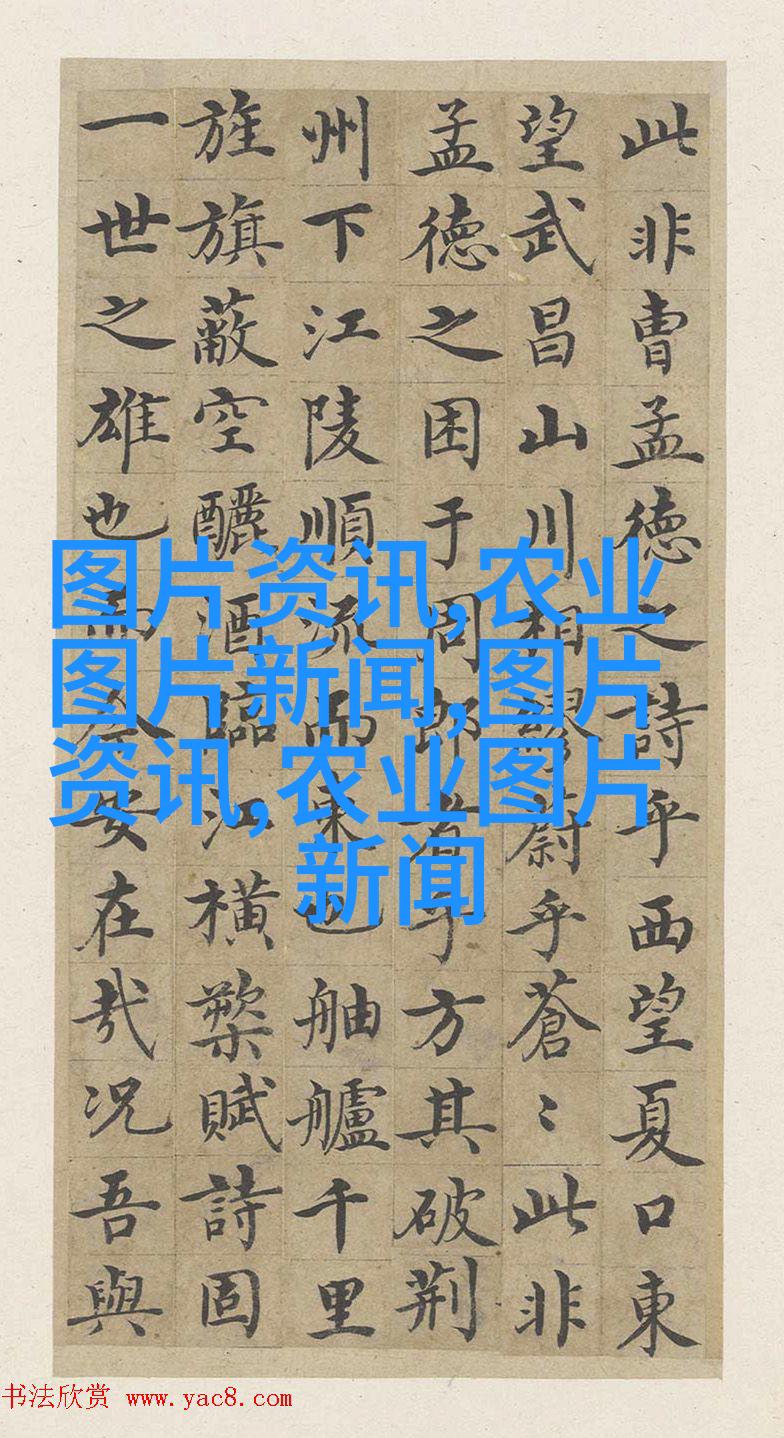 此非曹孟德之詩乎西望夏口東
望武昌山川相繆蔚乎蒼〻此非
孟德之困于周郎者乎方其破荆
州下江陵順流而東也舳艫千里
旌旗蔽空釃酒臨江橫槊賦詩固
一世之雄也而今安在哉况吾與
图片资讯,农业
图片新闻,图片
资讯,农业图片
新闻
书法欣赏 www.yac8.com